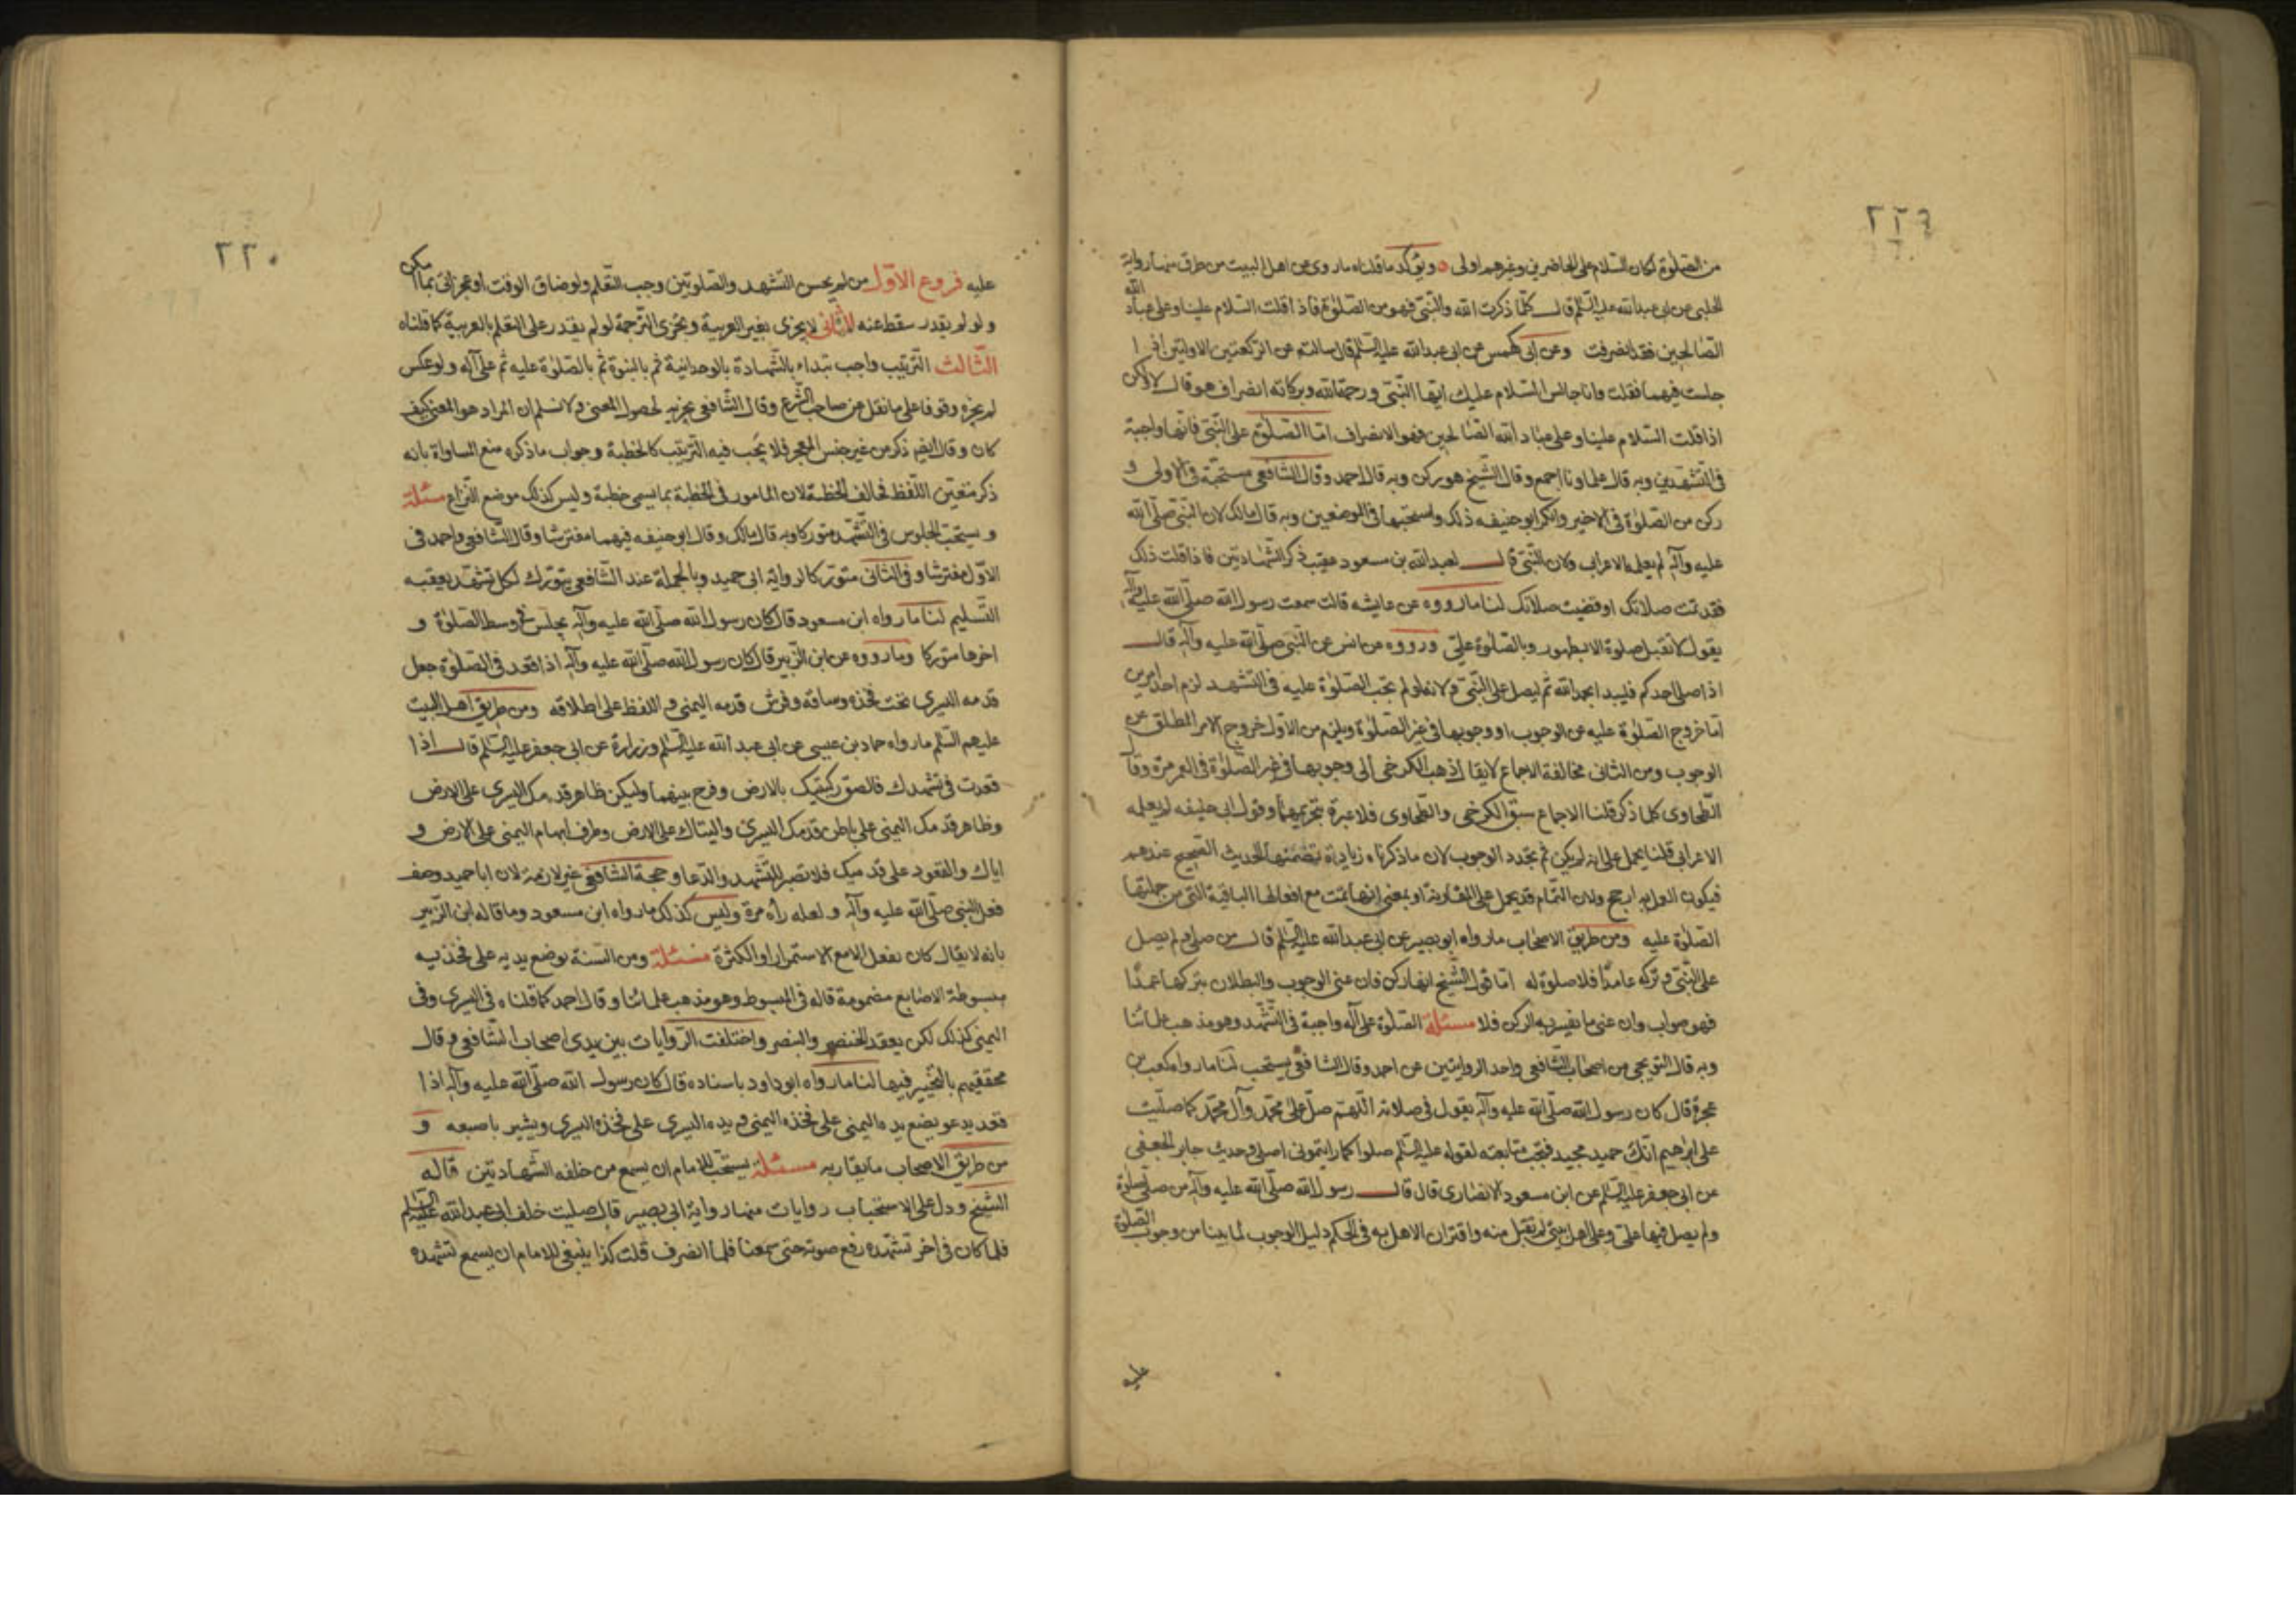 ٢٢٩
من الصلوة لكان السلام على الحاضرين وغيرهم اولى ويؤكد ما قلناه ما روى عن اهل البيت من طرق منها رواية
الحلبى عن ابى عبدالله عليه السلم قال كلما ذكرت الله والنبى فهو من الصلوة فاذا قلت السلام علينا وعلى عباد الله
الصالحين فقد انصرفت وعن ابى كهمس عن ابى عبدالله عليه السلم قال سالته عن الركعتين الاولتين اذا
جلست فيهما فقلت وانا جالس السلام عليك ايها النبى ورحمة الله وبركاته انصراف هو قال لا ولكن
اذا قلت السلام علينا وعلى عباد الله الصالحين فهو الانصراف اما الصلوة على النبى فانها واجبة
فى التشهدين وبه قال علماونا اجمع وقال الشيخ هو ركن وبه قال احمد وقال الشافعى مستحبة فى الاولى و
ركن من الصلوة فى الاخير وانكر ابو حنيفه ذلك واستحبها فى الموضعين وبه قال مالك لان النبى صلى الله
عليه وآله لم يعلمه الاعرابى ولان النبى قال لعبدالله بن مسعود عقيب ذكر الشهادتين فاذا قلت ذلك
فقد تمت صلاتك او قضيت صلاتك لنا ما رووه عن عايشه قالت سمعت رسول الله صلى الله عليه وآله
يقول لا تقبل صلوة الا بطهور وبالصلوة على ورووه عن انس عن النبى صلى الله عليه وآله قال
اذا صلى احدكم فليبدا بحمد الله ثم ليصل على النبى ولانه لو لم تجب الصلوة عليه فى التشهد لزم احد امرين
اما خروج الصلوة عليه عن الوجوب او وجوبها فى غير الصلوة ويلزم من الاول خروج الامر المطلق عن
الوجوب ومن الثانى مخالفة الاجماع لا يقال ذهب الكرخى الى وجوبها فى غير الصلوة فى العمر مرة وقال
الطحاوى كلما ذكر قلنا الاجماع سبق الكرخى والطحاوى فلا عبرة بتخريجهما وقول ابى حنيفه لم يعلمه
الاعرابى قلنا يحمل على انه لم يكن ثم تجدد الوجوب لان ما ذكرناه زيادة تضمنها الحديث الصحيح عندهم
فيكون العمل به ارجح ولان التمام قد يحمل على المقاربة او بمعنى انها تمت مع افعالها الباقية التى من جملتها
الصلوة عليه ومن طريق الاصحاب ما رواه ابو بصير عن ابى عبدالله عليه السلم قال من صلى ولم يصل
على النبى وتركه عامدا فلا صلوة له اما قول الشيخ انها ركن فان عنى الوجوب والبطلان بتركها عمدا
فهو صواب وان عنى ما يفسر به الركن فلا مسئلة الصلوة على آله واجبة فى التشهد وهو مذهب علمائنا
وبه قال التويجى من اصحاب الشافعى واحد الروايتين عن احمد وقال الشافعى يستحب لنا ما رواه كعب بن
عجرة قال كان رسول الله صلى الله عليه وآله يقول فى صلاته اللهم صل على محمد وآل محمد كما صليت
على ابرهيم انك حميد مجيد فتجب متابعته لقوله عليه السلم صلوا كما رايتمونى اصلى وحديث جابر الجعفى
عن ابى جعفر عليه السلم عن ابن مسعود الانصارى قال قال رسول الله صلى الله عليه وآله من صلى صلوة
ولم يصل فيها على وعلى اهل بيتى لم تقبل منه واقتران الاهل به فى الحكم دليل الوجوب لما بينا من وجوب الصلوة
عليه
٢٢٠
عليه فروع الاول من لم يحسن التشهد والصلوتين وجب التعلم ولو ضاق الوقت او عجز اتى بما امكن
ولو لم يقدر سقط عنه الثانى لا يجزى بغير العربية ويجزى الترجمة لو لم يقدر على التعلم بالعربية كما قلناه
الثالث الترتيب واجب يبتداء بالشهادة بالوحدانية ثم بالنبوة ثم بالصلوة عليه ثم على آله ولو عكس
لم يجزه وقوفا على ما نقل عن صاحب الشرع وقال الشافعى يجزيه لحصول المعنى ولا نسلم ان المراد هو المعنى كيف
كان وقال ايضا ذكر من غير جنس المعجز فلا يجب فيه الترتيب كالخطبة وجواب ما ذكره منع المساواة بانه
ذكر متعين اللفظ فخالف الخطبة لان المامور فى الخطبة بما يسمى خطبة وليس كذلك موضع النزاع مسئلة
و يستحب الجلوس فى التشهد متوركا وبه قال مالك وقال ابو حنيفه فيهما مفترشا وقال الشافعى واحمد فى
الاول مفترشا وفى الثانى متوركا لرواية ابى حميد وبالجملة عند الشافعى يتورك لكل تشهد يعقبه
التسليم لنا ما رواه ابن مسعود قال كان رسول الله صلى الله عليه وآله يجلس فى وسط الصلوة و
اخرها متوركا وما رووه عن ابن الزبير قال كان رسول الله صلى الله عليه وآله اذا قعد فى الصلوة جعل
قدمه اليسرى تحت فخذه وساقه وفرش قدمه اليمنى واللفظ على اطلاقه ومن طريق اهل البيت
عليهم السلم ما رواه حماد بن عيسى عن ابى عبدالله عليه السلم وزرارة عن ابى جعفر عليه السلم قال اذا
قعدت فى تشهدك فالصق ركبتيك بالارض وفرج بينهما وليكن ظاهر قدمك اليسرى على الارض
وظاهر قدمك اليمنى على باطن قدمك اليسرى واليتاك على الارض وطرف ابهام اليمنى على الارض و
اياك والقعود على قدميك فلا تصبر للتشهد والدعا وحجة الشافعى غير لازمة لان ابا حميد وصف
فعل النبى صلى الله عليه وآله ولعله رآه مرة وليس كذلك ما رواه ابن مسعود وما قاله ابن الزبير
بانه لا يقال كان يفعل الا مع الاستمرار او الكثرة مسئلة ومن السنة وضع يديه على فخذيه
مبسوطة الاصابع مضمومة قاله فى المبسوط وهو مذهب علمائنا وقال احمد كما قلناه فى اليسرى وفى
اليمنى كذلك لكن يعقد الخنصر والبنصر واختلفت الروايات بين يدى اصحاب الشافعى وقال
محققيهم بالتخيير فيها لنا ما رواه ابو داود باسناده قال كان رسول الله صلى الله عليه وآله اذا
قعد يدعو يضع يده اليمنى على فخذه اليمنى ويده اليسرى على فخذه اليسرى ويشير باصبعه و
من طريق الاصحاب ما يقاربه مسئلة يستحب للامام ان يسمع من خلفه الشهادتين قاله
الشيخ ودل على الاستحباب روايات منها رواية ابى بصير قال صليت خلف ابى عبدالله عليه السلم
فلما كان فى اخر تشهده رفع صوته حتى سمعنا فلما انصرف قلت كذا ينبغى للامام ان يسمع تشهده